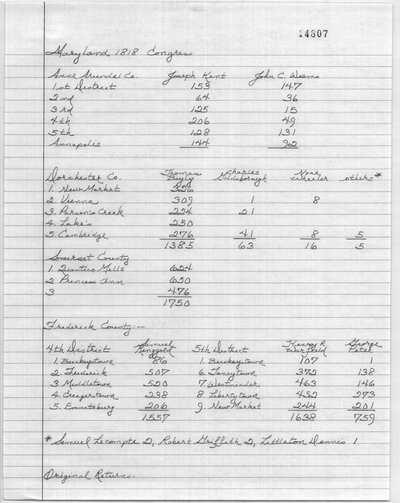 14807
Maryland 1818 Congress
Anne Arundel Co. Joseph Kent John C. Weems
1st District 153 147
2nd 64 36
3rd 125 15
4th 206 49
5th 128 131
Annapolis 144 92
Dorchester Co. Thomas Bayly Charles Goldsborough Noah Wheeler others*
1. New Market
2. Vienna 309 1 8
3. Parson's Creek 224 21
4. Lake's 250
5. Cambridge 276 41 8 5
1385 63 16 5
Somerset County
1. Quantico Mills 624
2 Princess Ann 650
3 476
1750
Frederick County:-
4th District Samuel Ringgold 5th District Henry R Warfield George Peter
1. Buckeystown 86 1. Buckeystown 107 1
2. Frederick 507 6. Taneytown 372 138
3. Middletown 520 7 Westminster 463 146
4. Creagerstown 238 8 Libertytown 452 273
5. Emmitsburg 206 9. New Market 244 201
1557 1638 759
* Samuel Lecompte 2, Robert Griffith 2, Littleton Dennis 1
Original Returns.